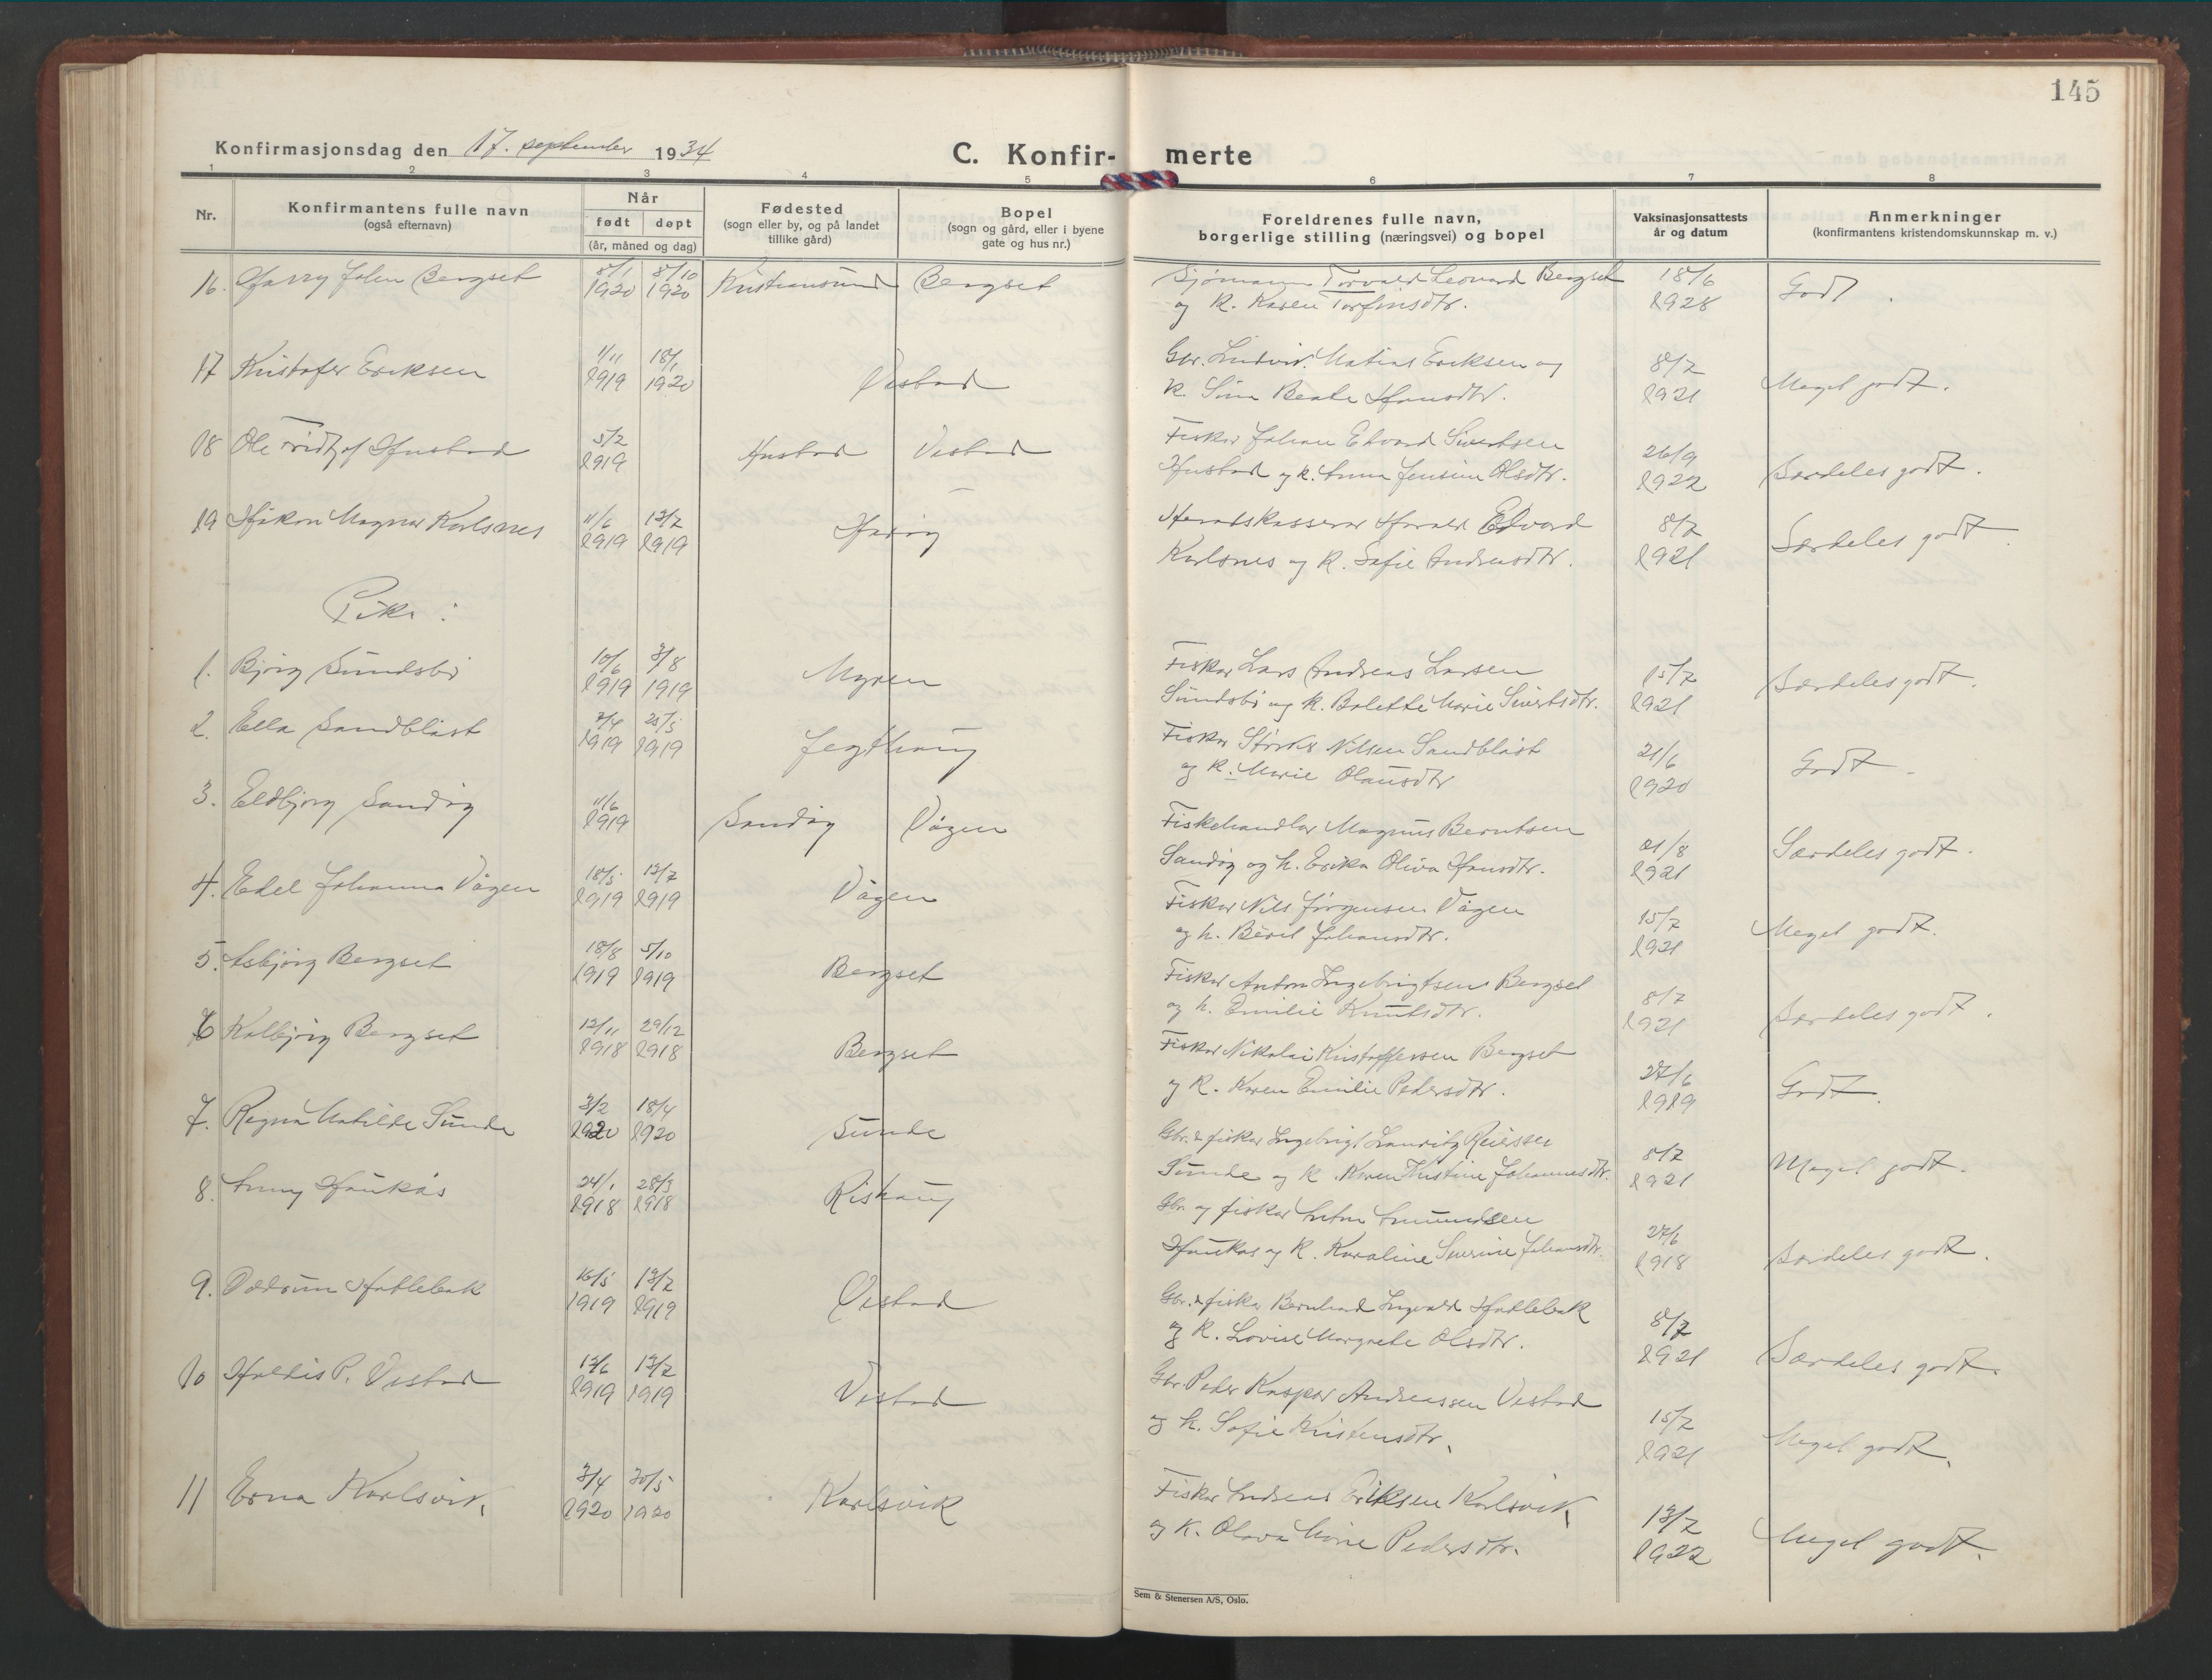 145
Konfirmasjonsdag den 17. september 1934
C. Konfir- merte
1 2 3 4 5 6 7 8
Nr.
Konfirmantens fulle navn
(også efternavn)
Når
født døpt
(år, måned og dag)
Fødested
(sogn eller by, og på landet
tillike gård)
Bopel
(sogn og gård, eller i byene
gate og hus nr.)
Foreldrenes fulle navn,
borgerlige stilling (næringsvei) og bopel
Vaksinasjonsattests
år og datum
Anmerkninger
(konfirmantens kristendomskunnskap m. v.)
16. Harry Johan Bergset 8/1 8/10 Kristiansund Bergset Sjømann Torvald Leonard Bergset 18/6 Godt.
1920 1920 og k. Karen Torfinsdtr. 1928
17 Kristofer Eriksen 1/11 18/1 Vestad Gbr. Ludvik Matias Eriksen og 8/7 Meget godt.
1919 1920 k. Sina Beate Hansdtr. 1921
18 Ole Fridtjof Hustad 5/2 Hustad Vestad Fisker Johan Edvard Sivertsen 26/9 Særdeles godt.
1919 Hustad og k. Anna Jensine Olsdtr. 1922
19 Håkon Magnar Karlsnes 11/6 13/7 Harøy Heradskasserer Harald Edvard 8/7 Særdeles godt.
1919 1919 Karlsnes og k. Sofie Andreasdtr. 1921
Piker:
1. Bjørg Sundsbø 10/6 3/8 Myren Fisker Lars Andreas Larsen 15/7 Særdeles godt.
1919 1919 Sundsbø og k. Bolette Marie Sivertsdtr. 1921
2. Ella Sandblåst 7/4 25/5 Jegthaug Fisker Størker Nilsen Sandblåst 21/6 Godt.
1919 1919 og k. Marie Olausdtr 1920
3. Eldbjørg Sandøy 11/6 Sandøy Vågen Fiskehandler Magnus Berntsen 21/8 Særdeles godt.
1919 Sandøy og h. Erika Oliva Hansdtr. 1921
4. Edel Johanna Vågen 18/5 13/7 Vågen Fisker Nils Jørgensen Vågen 15/7 Meget godt.
1919 1919 og h. Beril Johansdtr. 1921
5. Asbjørg Bergset 18/8 5/10 Bergset Fisker Anton Ingebrigtsen Bergset 8/7 Særdeles godt.
1919 1919 og h. Emilie Knutsdtr. 1921
6 Kolbjørg Bergset 12/11 29/12 Bergset Fisker Nikolai Kristoffersen Bergset 27/6 Godt.
1918 1918 og k. Karen Emilie Pedersdtr. 1919
7. Ragna Matilde Sunde 3/2 18/4 Sunde Gbr. & fisker Ingebrigt Lauritz Reiersen 8/7 Meget godt.
1920 1920 Sunde og k. Karen Kristine Johannesdtr. 1921
8. Anny Haukås 24/1 28/3 Rishaug Gbr. og fisker Anton Amundsen 27/6 Særdeles godt.
1918 1918 Haukås og k. Karoline Severine Johansdtr. 1918
9. Oddrun Hatlebak 16/5 13/7 Vestad Gbr. & fisker Bernhard Ingvald Hatlebak 8/7 Særdeles godt.
1919 1919 og k. Lovise Margrete Olsdtr. 1921
10 Haldis P. Vestad 13/6 13/7 Vestad Gbr. Peder Kaspar Andreassen Vestad 15/7 Meget godt.
1919 1919 og h. Sofie Kristensdtr. 1921
11 Erna Karlsvik 3/4 30/5 Karlsvik Fisker Andreas Eriksen Karlsvik 13/7 Meget godt.
1920 1920 og k. Olava Marie Pedersdtr. 1922
Sem & Stenersen A/S, Oslo.